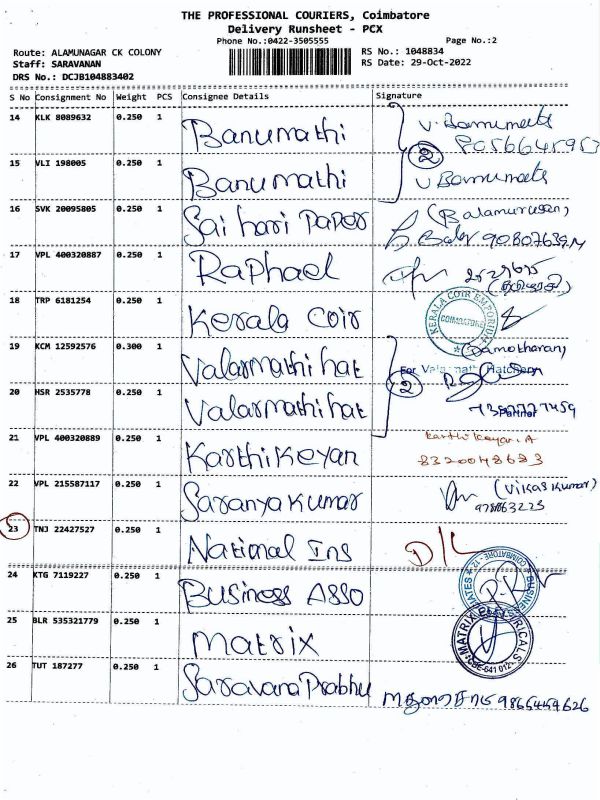 THE PROFESSIONAL COURIERS, Coimbatore
Delivery Runsheet - PCX
Phone No.:0422-3505555
Page No.:2
Route: ALAMUNAGAR CK COLONY
RS No.: 1048834
Staff: SARAVANAN
RS Date: 29-Oct-2022
DRS No.: DCJB104883402
S No Consignment No Weight PCS Consignee Details Signature
14 KLK 8089632 0.250 1 Banumathi
15 VLI 198005 0.250 1 Banumathi
2
16 SVK 20095805 0.250 1 Sai hari Paper (Balamurugan)
17 VPL 400320887 0.250 1 Raphael
18 TRP 6181254 0.250 1 Kerala Coir
KERALA COIR EMPORIUM
COIMBATORE
19 KCM 12592576 0.300 1 Valarmathi hat (Damotharan)
For Valarmathi Hatchery
2
20 HSR 2535778 0.250 1 Valarmathi hat
Partner
21 VPL 400320889 0.250 1 Karthikeyan Karthikeyan.A
8320048683
22 VPL 215587117 0.250 1 Saranya Kumar (Vikas Kumar)
23 TNJ 22427527 0.250 1 National Ins D/L
24 KTG 7119227 0.250 1 Business Asso
25 BLR 535321779 0.250 1 Matrix
26 TUT 187277 0.250 1 Saravana Prabhu 9865459626